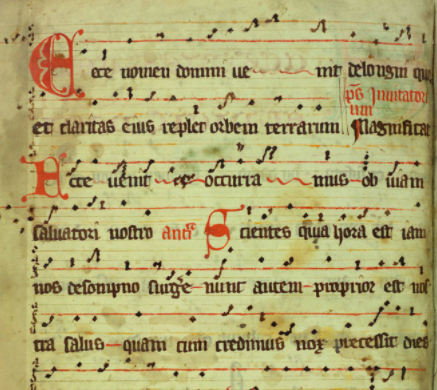 Ecce nomen domini ve nit delonginquo
ps Invitatori
um
et claritas eius replet orbem terrarum Magnificat
Ecce venit occurra mus ob viam
salvatori nostro ant Scientes quia hora est iam
nos desompno surge nunt autem proprior est nos
tra salus quam cum credimus nox precessit dies